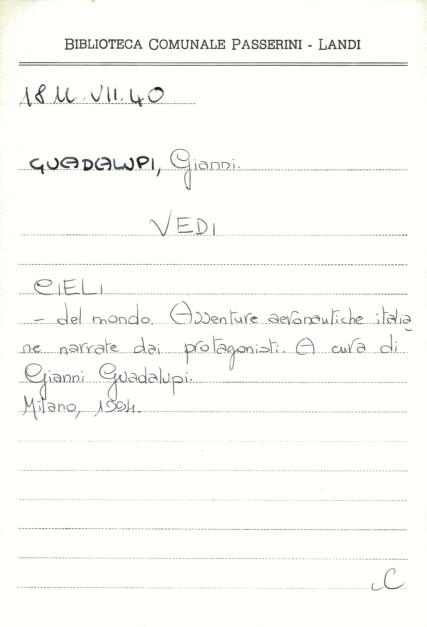 BIBLIOTECA COMUNALE PASSERINI - LANDI
18 M. VII. 40
GUADALUPI, Gianni.
VEDI
CIELI
- del mondo. Avventure aeronautiche italia
ne narrate dai protagonisti. A cura di
Gianni Guadalupi.
Milano, 1994.
C